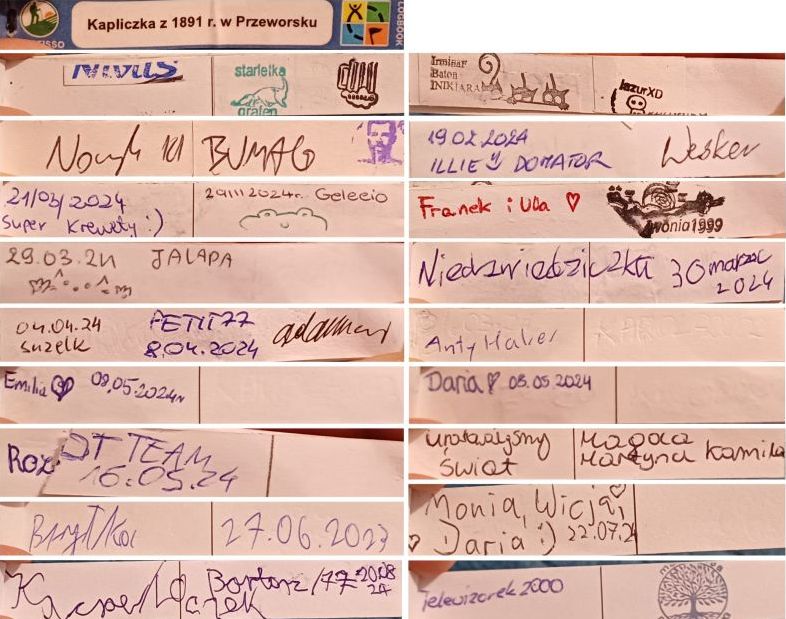 Kapliczka z 1891 r. w Przeworsku
LOGBOOK
NIVUS
starletka
grafen
Irminar
Baton
INIKJARA
lazurXD
BUMAG
19.02.2024
ILLIE DOMATOR
Wesker
21/03/2024
Super Krewety :)
29III2024r. Geleeio
Franek i Ula ♡
Iwonia1999
29.03.24 JALAPA
Niedźwiedziczka 30 marzec
2024
04.04.24
suzelk
PETIT77
8.04.2024
Anty Haker
Emilia ♡ 08.05.2024r
Daria ♡ 08.05.2024
Rox
OT TEAM
16.05.24
uratowaliśmy
świat
Magda
Martyna Kamila
BzytKa 27.06.2023
Monia, Wicja,
Daria :) 22.07.24
Kacper
Bartosz /77 2008
24
Telewizorek2000